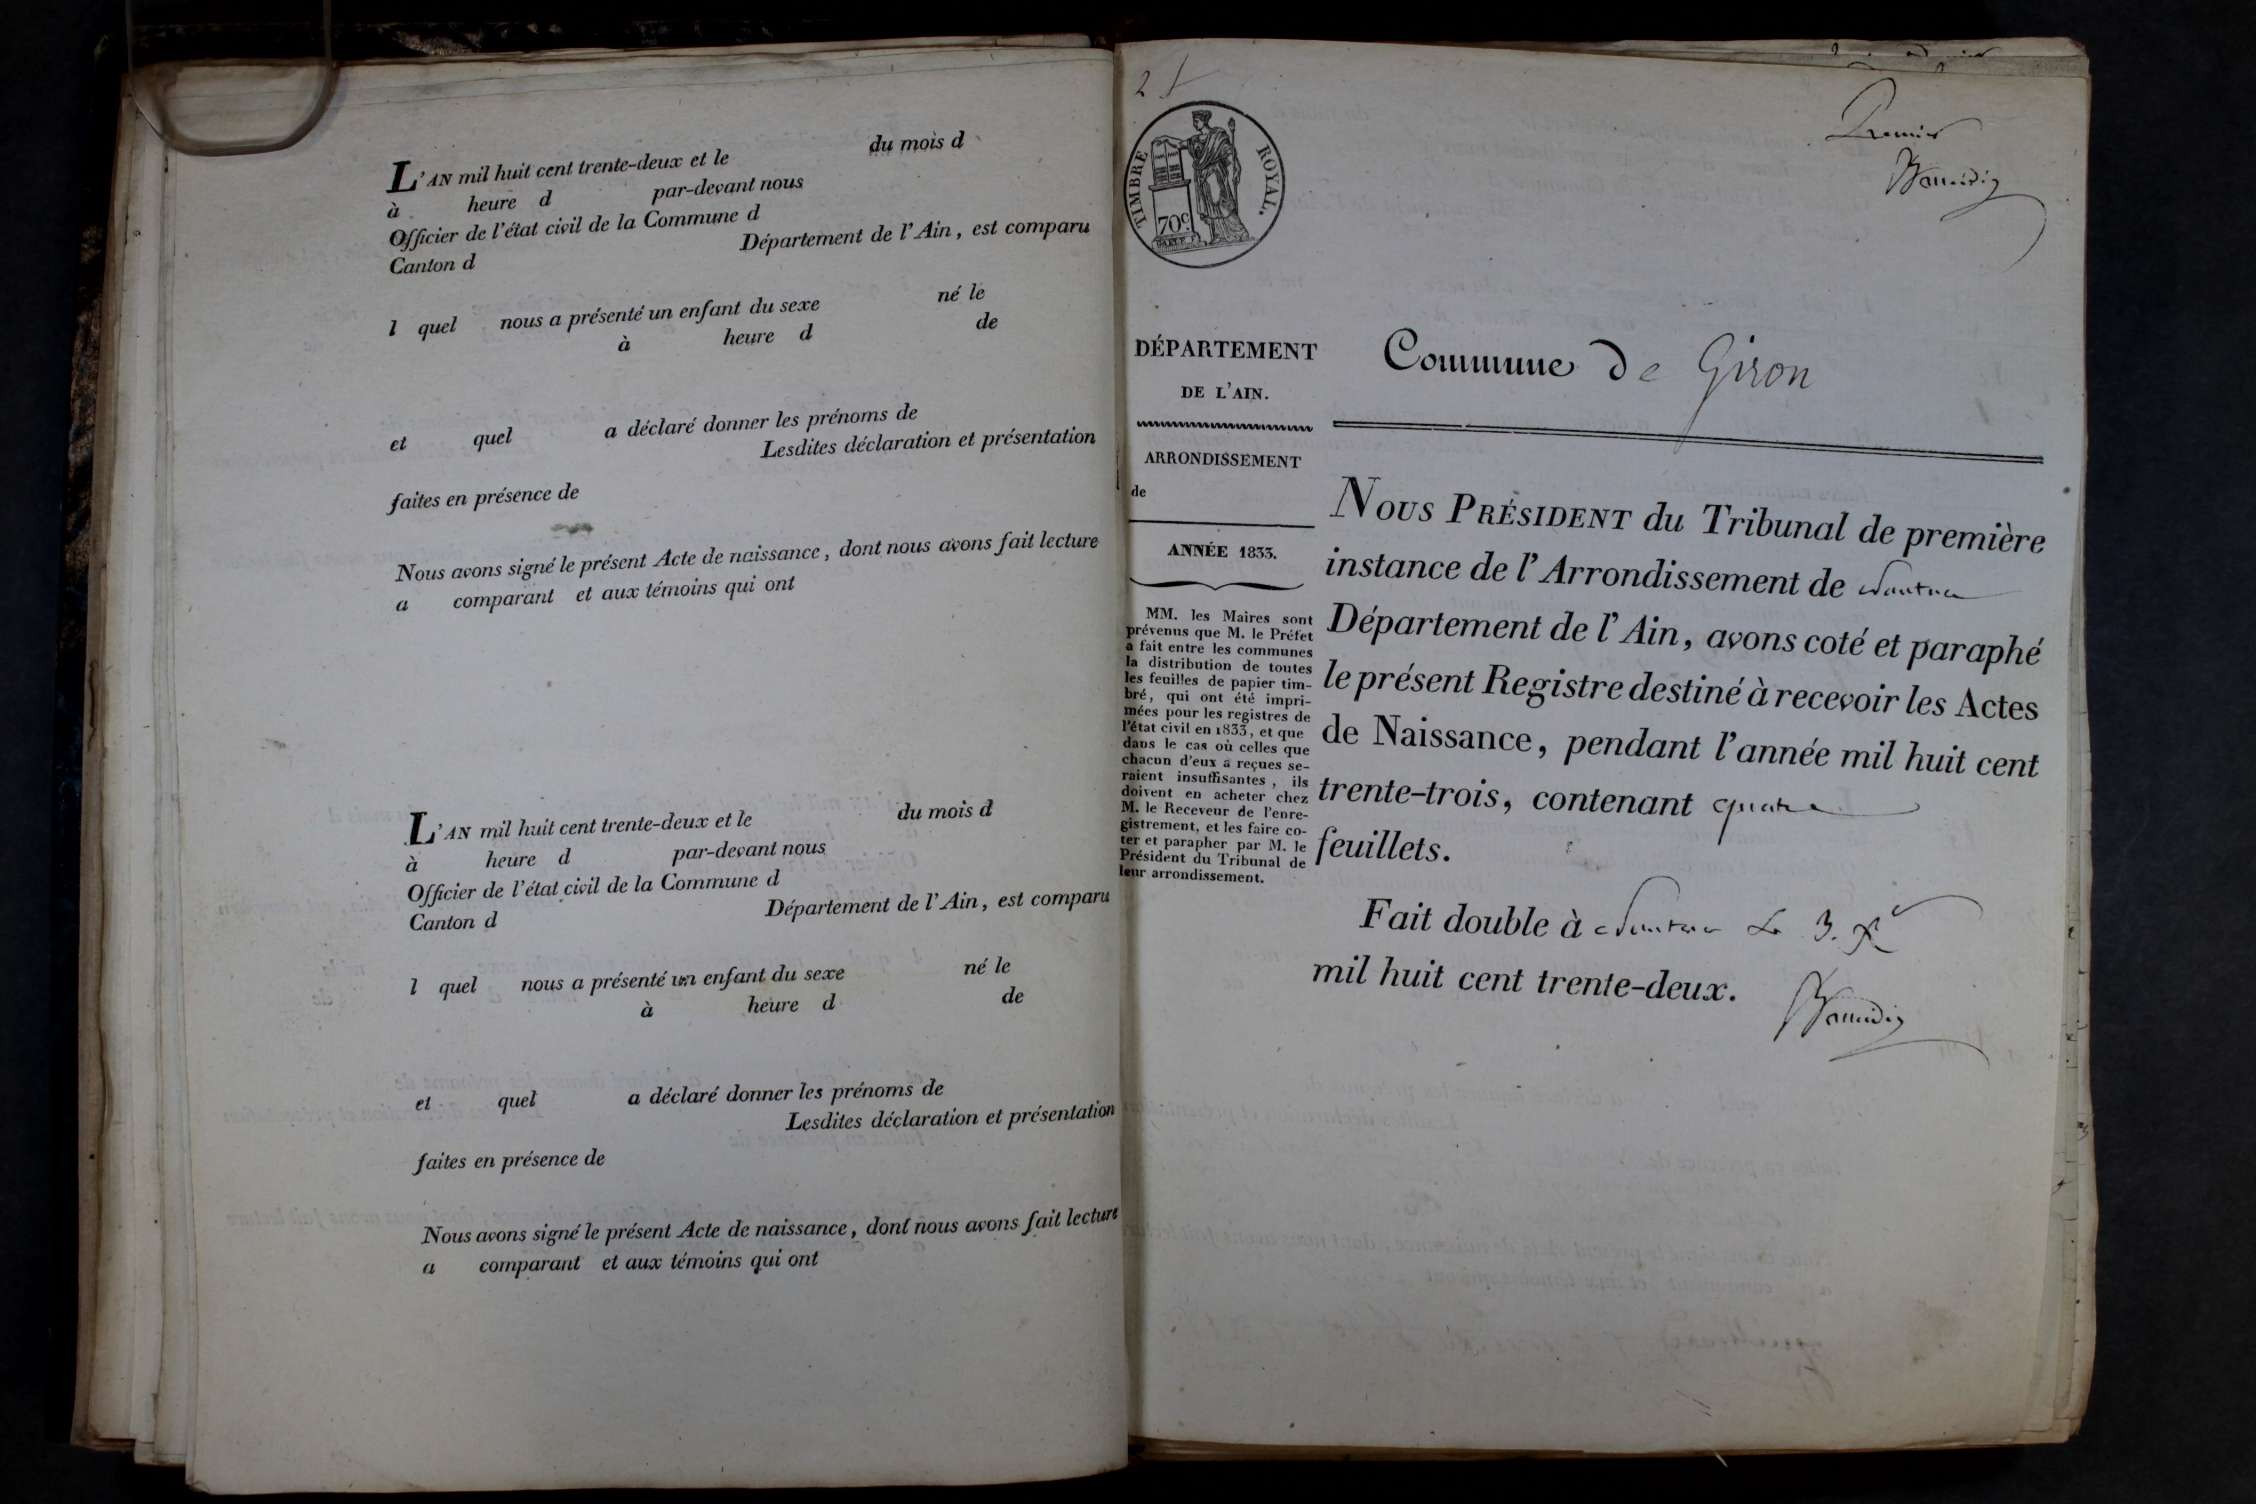 L'AN mil huit cent trente-deux et le du mois d
à heure d par-devant nous
Officier de l'état civil de la Commune d
Canton d Département de l'Ain, est comparu
l quel nous a présenté un enfant du sexe né le
à heure d de
et quel a déclaré donner les prénoms de
Lesdites déclaration et présentation
faites en présence de
Nous avons signé le présent Acte de naissance, dont nous avons fait lecture
a comparant et aux témoins qui ont
L'AN mil huit cent trente-deux et le du mois d
à heure d par-devant nous
Officier de l'état civil de la Commune d
Canton d Département de l'Ain, est comparu
l quel nous a présenté un enfant du sexe né le
à heure d de
et quel a déclaré donner les prénoms de
Lesdites déclaration et présentation
faites en présence de
Nous avons signé le présent Acte de naissance, dont nous avons fait lecture
a comparant et aux témoins qui ont
2
Premier
TIMBRE ROYAL.
70c
DÉPARTEMENT
DE L'AIN.
ARRONDISSEMENT
de
ANNÉE 1833.
MM. les Maires sont
prévenus que M. le Préfet
a fait entre les communes
la distribution de toutes
les feuilles de papier tim-
bré, qui ont été impri-
mées pour les registres de
l'état civil en 1833, et que
dans le cas où celles que
chacun d'eux a reçues se-
raient insuffisantes, ils
doivent en acheter chez
M. le Receveur de l'enre-
gistrement, et les faire co-
ter et parapher par M. le
Président du Tribunal de
leur arrondissement.
Commune de Giron
NOUS PRÉSIDENT du Tribunal de première
instance de l'Arrondissement de Nantua
Département de l'Ain, avons coté et paraphé
le présent Registre destiné à recevoir les Actes
de Naissance, pendant l'année mil huit cent
trente-trois, contenant quatre
feuillets.
Fait double à Nantua le 3. Xe
mil huit cent trente-deux.